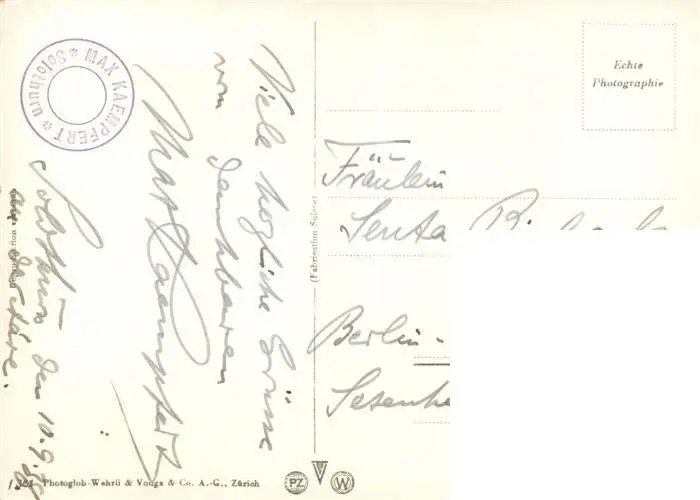 MAX KAEMPFERT
* Solothurn *
Viele herzliche Grüsse
vom dankbaren
Max Kaempfert
Solothurn den 10.9.
Echte
Photographie
Fräulein
Senta
Berlin-
(Fabrication Suisse)
Photoglob-Wehrli & Vouga & Co. A.-G., Zürich
PZ
V
W